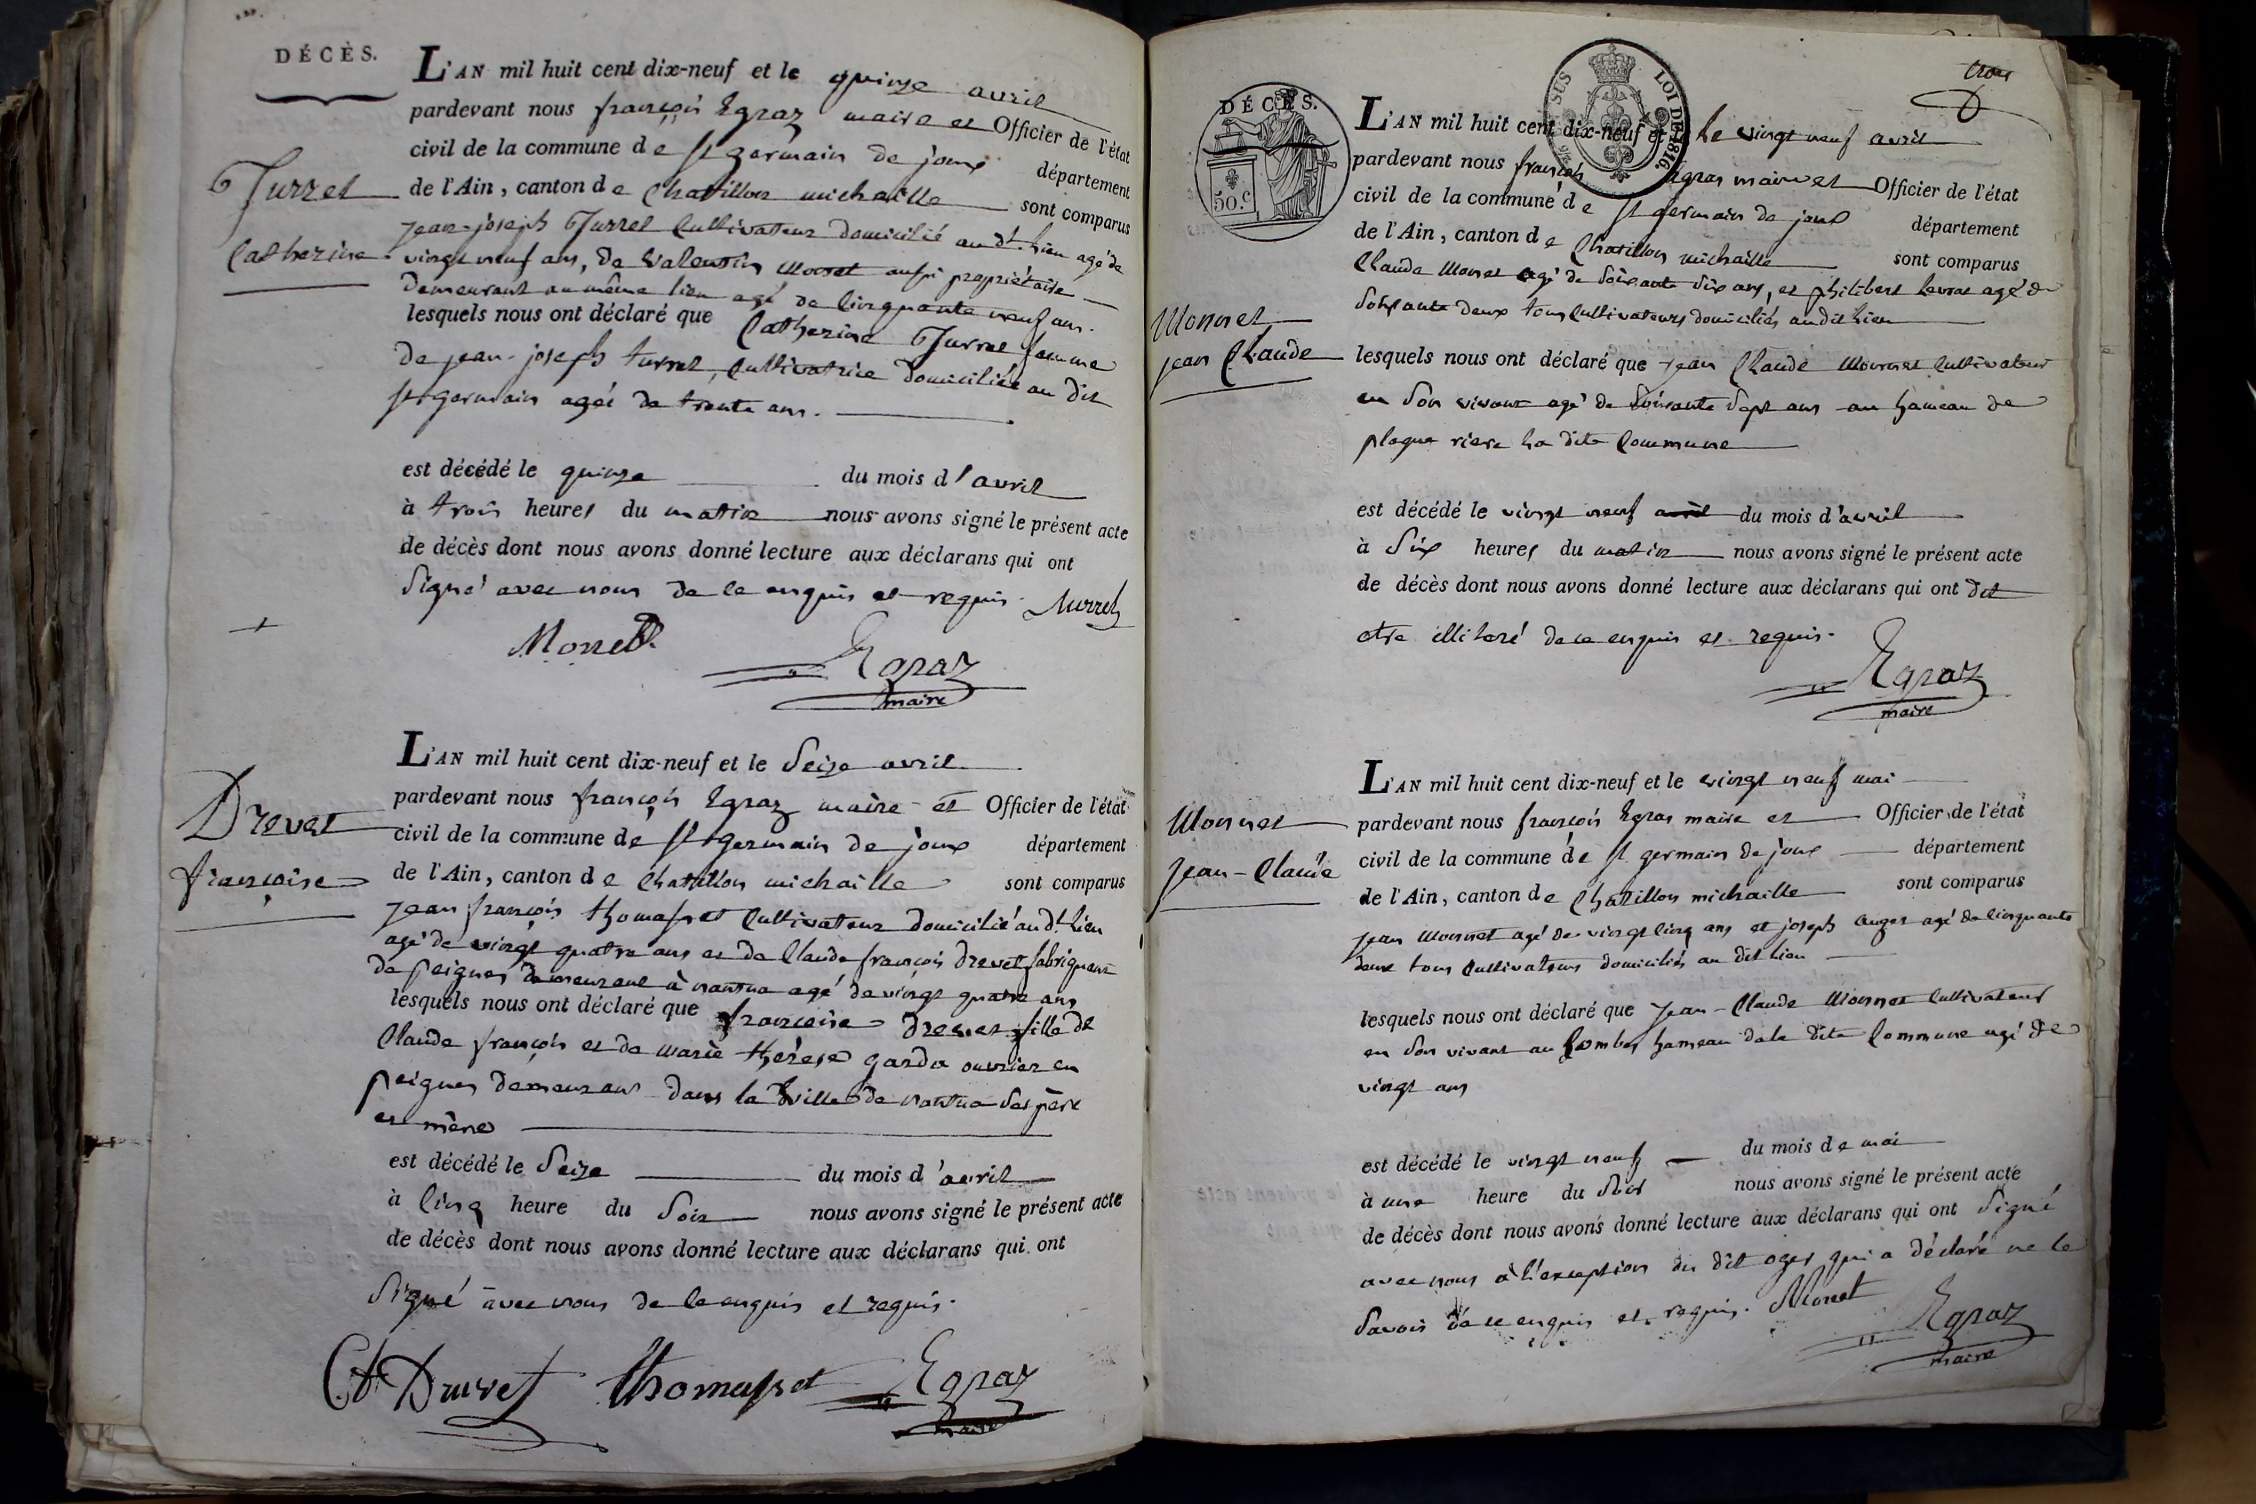 DÉCÈS.
L'AN mil huit cent dix-neuf et le quinze avril
pardevant nous françois Egraz maire et Officier de l'état
civil de la commune de St germain de joux département
de l'Ain, canton de Chatillon michaille sont comparus
Turrel
Catherine
jean-joseph Turrel Cultivateur domicilié au dt. lieu agé de
vingt neuf ans, de Valentin Monet aussi propriétaire
demeurant au même lieu agé de Cinquante neuf ans.
lesquels nous ont déclaré que Catherine Turrel femme
de jean-joseph turrel, Cultivatrice domiciliée au dit
St germain agéé de trente ans.
est décédé le quinze du mois d'avril
à trois heures du matin nous avons signé le présent acte
de décès dont nous avons donné lecture aux déclarans qui ont
Signé avec nous de ce enquis et requis. Turrel
Monet
Egraz
maire
L'AN mil huit cent dix-neuf et le Seize avril
pardevant nous françois Egraz maire et Officier de l'état
civil de la commune de St germain de joux département
de l'Ain, canton de Chatillon michaille sont comparus
Drevet
françoise
jean françois thomasset Cultivateur domicilié au dt. lieu
agé de vingt quatre ans et de Claude françois Drevet fabriquant
de peignes demeurant à nantua agé de vingt quatre ans
lesquels nous ont déclaré que françoise Drevet fille de
Claude françois et de marie thérese garda ouvrier en
peignes demeurant dans la ville de nantua Ses père
et mère
est décédé le Seize du mois d'avril
à Cinq heure du Soir nous avons signé le présent acte
de décès dont nous avons donné lecture aux déclarans qui ont
Signé avec nous de ce enquis et requis.
thomasset Egraz
maire
trois
DÉCÈS.
50.c
SUS
LOI DE 1816.
L'AN mil huit cent dix-neuf et le vingt neuf avril
pardevant nous françois Egras maire et Officier de l'état
civil de la commune de St germain de joux département
de l'Ain, canton de Chatillon michaille sont comparus
Monnet
jean Claude
Claude Monnet agé de Soixante Six ans, et philibert agé de
Soixante deux tous Cultivateurs domiciliés au dit lieu
lesquels nous ont déclaré que jean Claude Monnet Cultivateur
en Son vivant agé de Soixante Sept ans au hameau de
plagne riere la dite Commune
est décédé le vingt neuf avril du mois d'avril
à Six heures du matin nous avons signé le présent acte
de décès dont nous avons donné lecture aux déclarans qui ont dit
etre illiteré de ce enquis et requis.
Egraz
maire
L'AN mil huit cent dix-neuf et le vingt neuf mai
pardevant nous françois Egras maire et Officier de l'état
civil de la commune de St germain de joux département
de l'Ain, canton de Chatillon michaille sont comparus
Monnet
Jean-Claude
jean Monnet agé de vingt Cinq ans et joseph auger agé de Cinquante
deux tous Cultivateurs domiciliés au dit lieu
lesquels nous ont déclaré que jean-Claude Monnet Cultivateur
en Son vivant au Combet hameau de la dite Commune agé de
vingt ans
est décédé le vingt neuf du mois de mai
à une heure du Soir nous avons signé le présent acte
de décès dont nous avons donné lecture aux déclarans qui ont Signé
avec nous à l'exception du dit oger qui a déclaré ne le
Savoir de ce enquis et requis. Monet
Egraz
maire